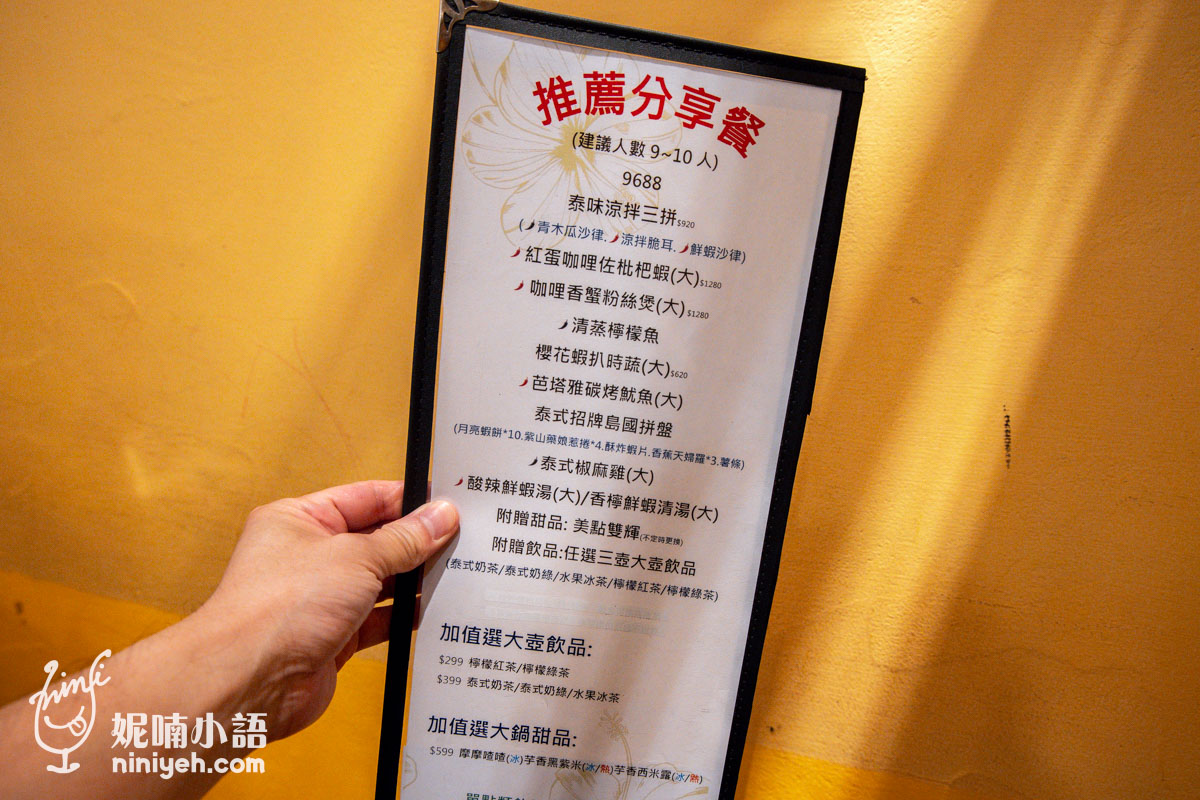 推薦分享餐
(建議人數 9~10 人)
9688
泰味涼拌三拼$920
(青木瓜沙律.涼拌脆耳.鮮蝦沙律)
紅蛋咖哩佐枇杷蝦(大)$1280
咖哩香蟹粉絲煲(大)$1280
清蒸檸檬魚
櫻花蝦扒時蔬(大)$620
芭塔雅碳烤魷魚(大)
泰式招牌島國拼盤
(月亮蝦餅*10.紫山藥娘惹捲*4.酥炸蝦片.香蕉天婦羅*3.薯條)
泰式椒麻雞(大)
酸辣鮮蝦湯(大)/香檸鮮蝦清湯(大)
附贈甜品: 美點雙輝(不定時更換)
附贈飲品:任選三壺大壺飲品
(泰式奶茶/泰式奶綠/水果冰茶/檸檬紅茶/檸檬綠茶)
加值選大壺飲品:
$299 檸檬紅茶/檸檬綠茶
$399 泰式奶茶/泰式奶綠/水果冰茶
加值選大鍋甜品:
$599 摩摩喳喳(冰)芋香黑紫米(冰/熱)芋香西米露(冰/熱)
妮喃小語
niniyeh.com